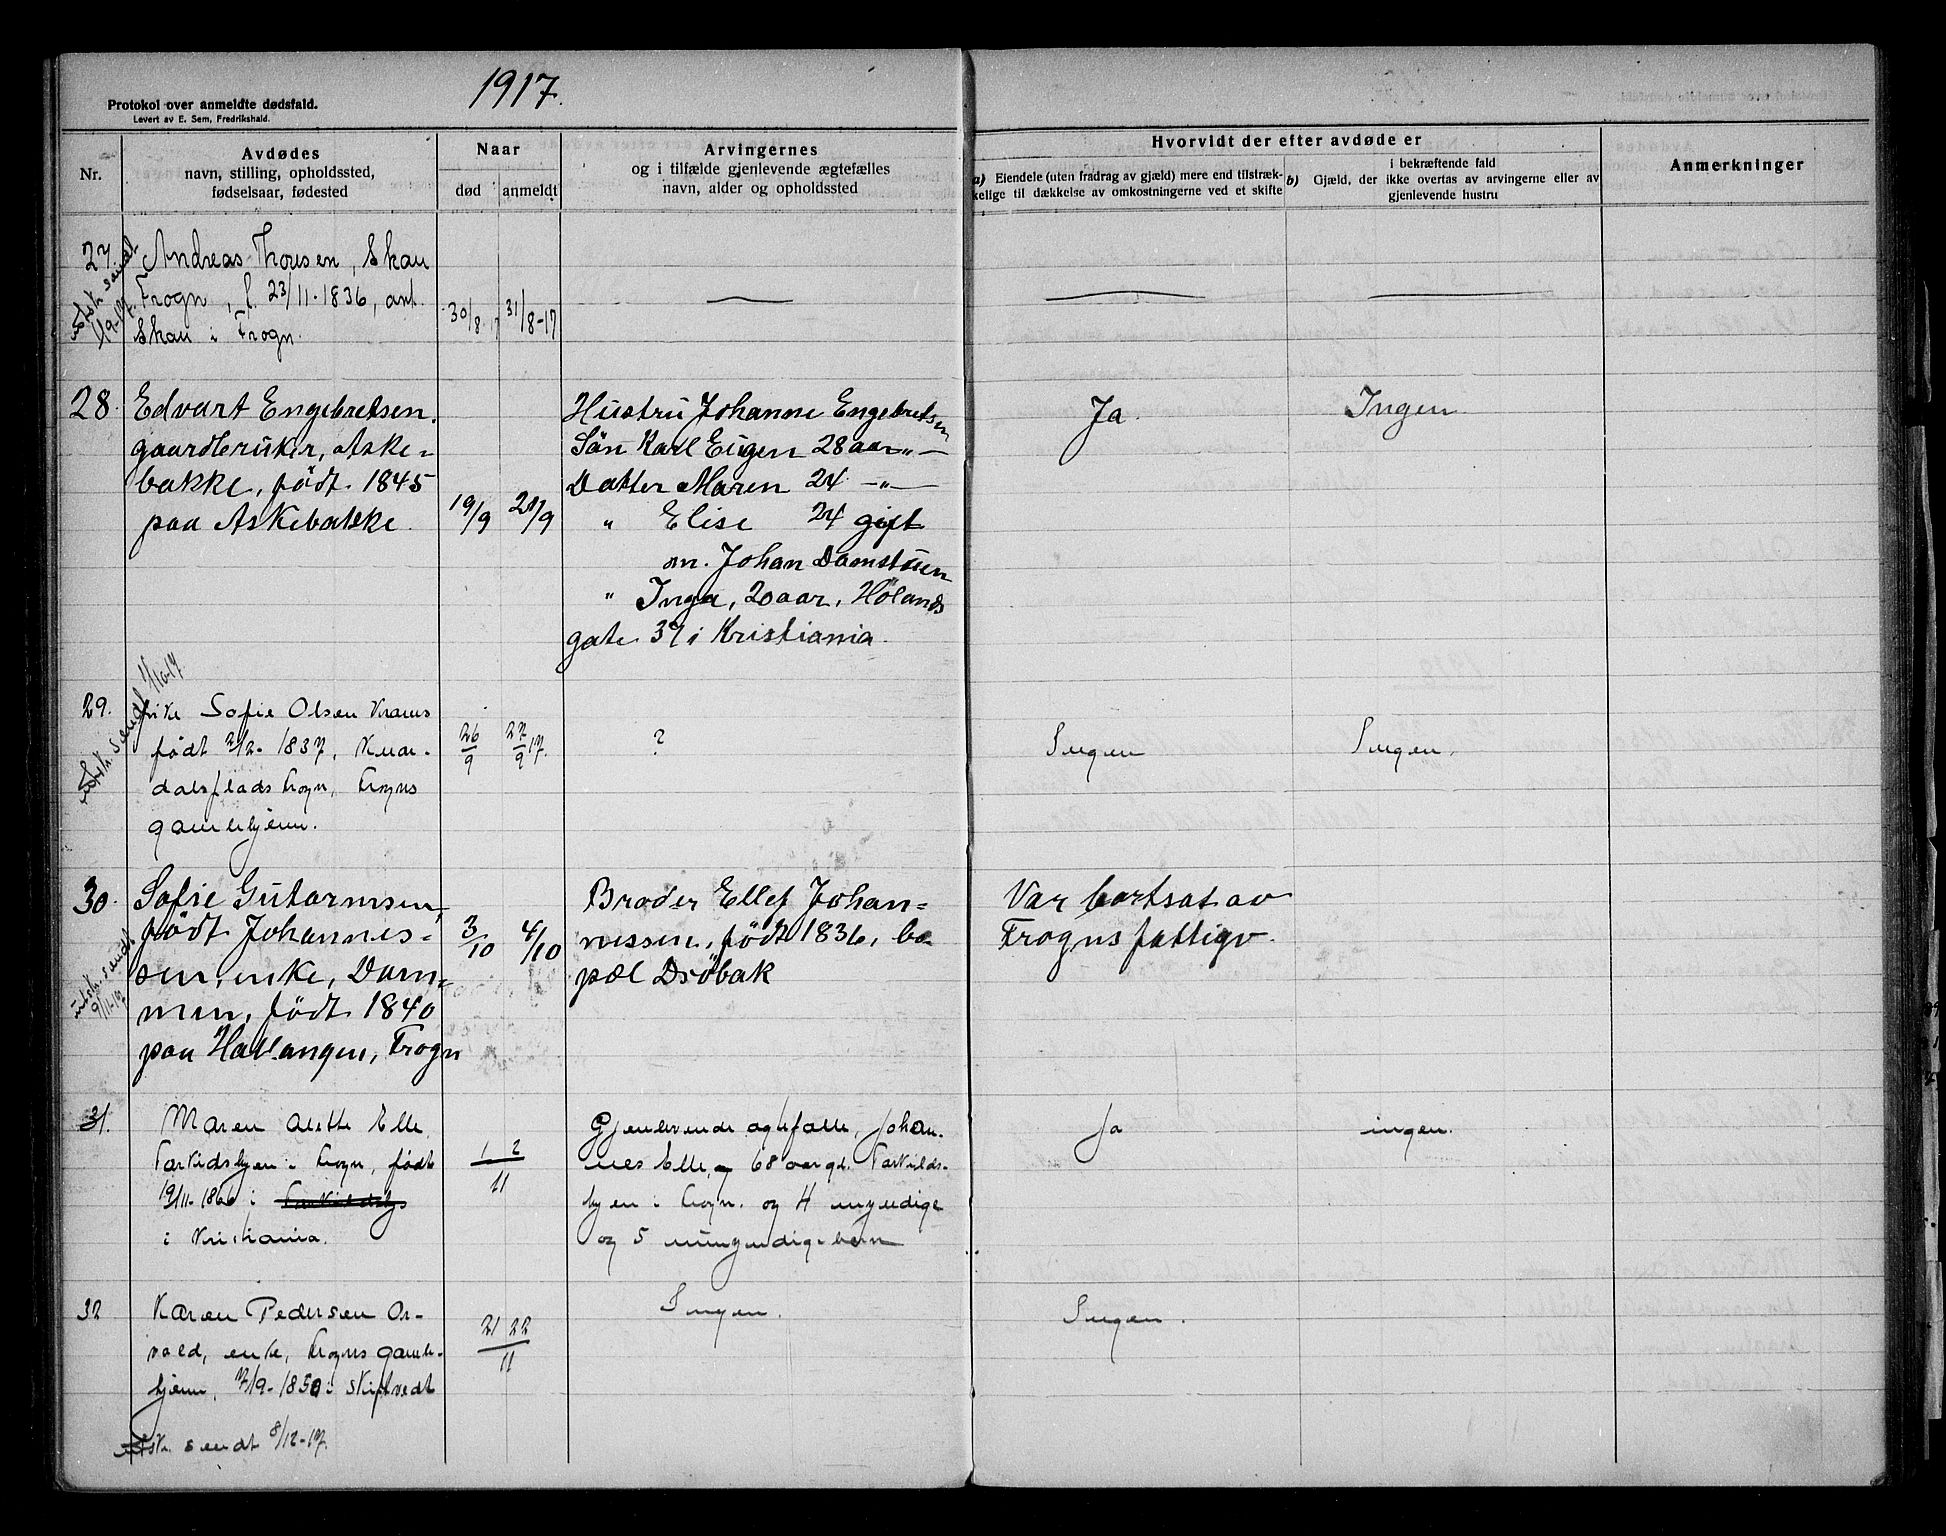 1917.
Protokol over anmeldte dødsfald.
Levert av E. Sem, Fredrikshald.
Nr.
Avdødes
navn, stilling, opholdssted,
fødselsaar, fødested
Naar
død
anmeldt
Arvingernes
og i tilfælde gjenlevende ægtefælles
navn, alder og opholdssted
Hvorvidt der efter avdøde er
a) Eiendele (uten fradrag av gjæld) mere end tilstræk-
kelige til dækkelse av omkostningerne ved et skifte
b) Gjæld, der
i bekræftende fald
ikke overtas av arvingerne eller av
gjenlevende hustru
Anmerkninger
27. Andreas Thoresen, Skau
Frogn, f. 23/11-1836, ant.
Skau i Frogn.
30/8-17
31/8-17
utskr. sendt
1/9-17.
28. Edvart Engebretsen.
gaardbruker, Aske-
bakke, født 1845
paa Askebakke.
19/9
21/9
Hustru Johanne Engebretsen
Sön Karl Eugen 28 aar -„-
Datter Maren 24 -„-
„ Elise 24 gift
m. Johan Damstuen
„ Inga, 20 aar, Hölands
gate 37 i Kristiania.
Ja.
Ingen
29. Enke Sofie Olsen Krams
født 2/2-1837,
dalsplads Frogn, Frogns
gamlehjem.
26/9
27/9 17.
?
Ingen
Ingen.
utskr. sendt 1/10-17
30. Sofie Gutormsen,
født Johannes-
sen, enke, Dam-
men, født 1840
paa Hallangen, Frogn
3/10
4/10
Broder Ellef Johan-
nessen, født 1836, bo-
pæl Dröbak
Var bortsat av
Frogns fattigv.
utskr. sendt
9/11-17
31. Maren Alette Elle
Torkildsbyen i Frogn, født
19/11-1866 i Torkildsby
i Kristiania.
1 2
11
Gjenlevende ægtefælle, Johan-
nes Elle, 68 aar gl. Torkilds-
byen i Frogn. og 4 myndige
og 5 umyndige børn
Ja
ingen.
32 Karen Pedersen Or-
vold, enke, Frogns gamle-
hjem, 17/9-1850 i Skiptvedt
21 22
11
Ingen.
Ingen.
utskr. sendt 8/12-17.